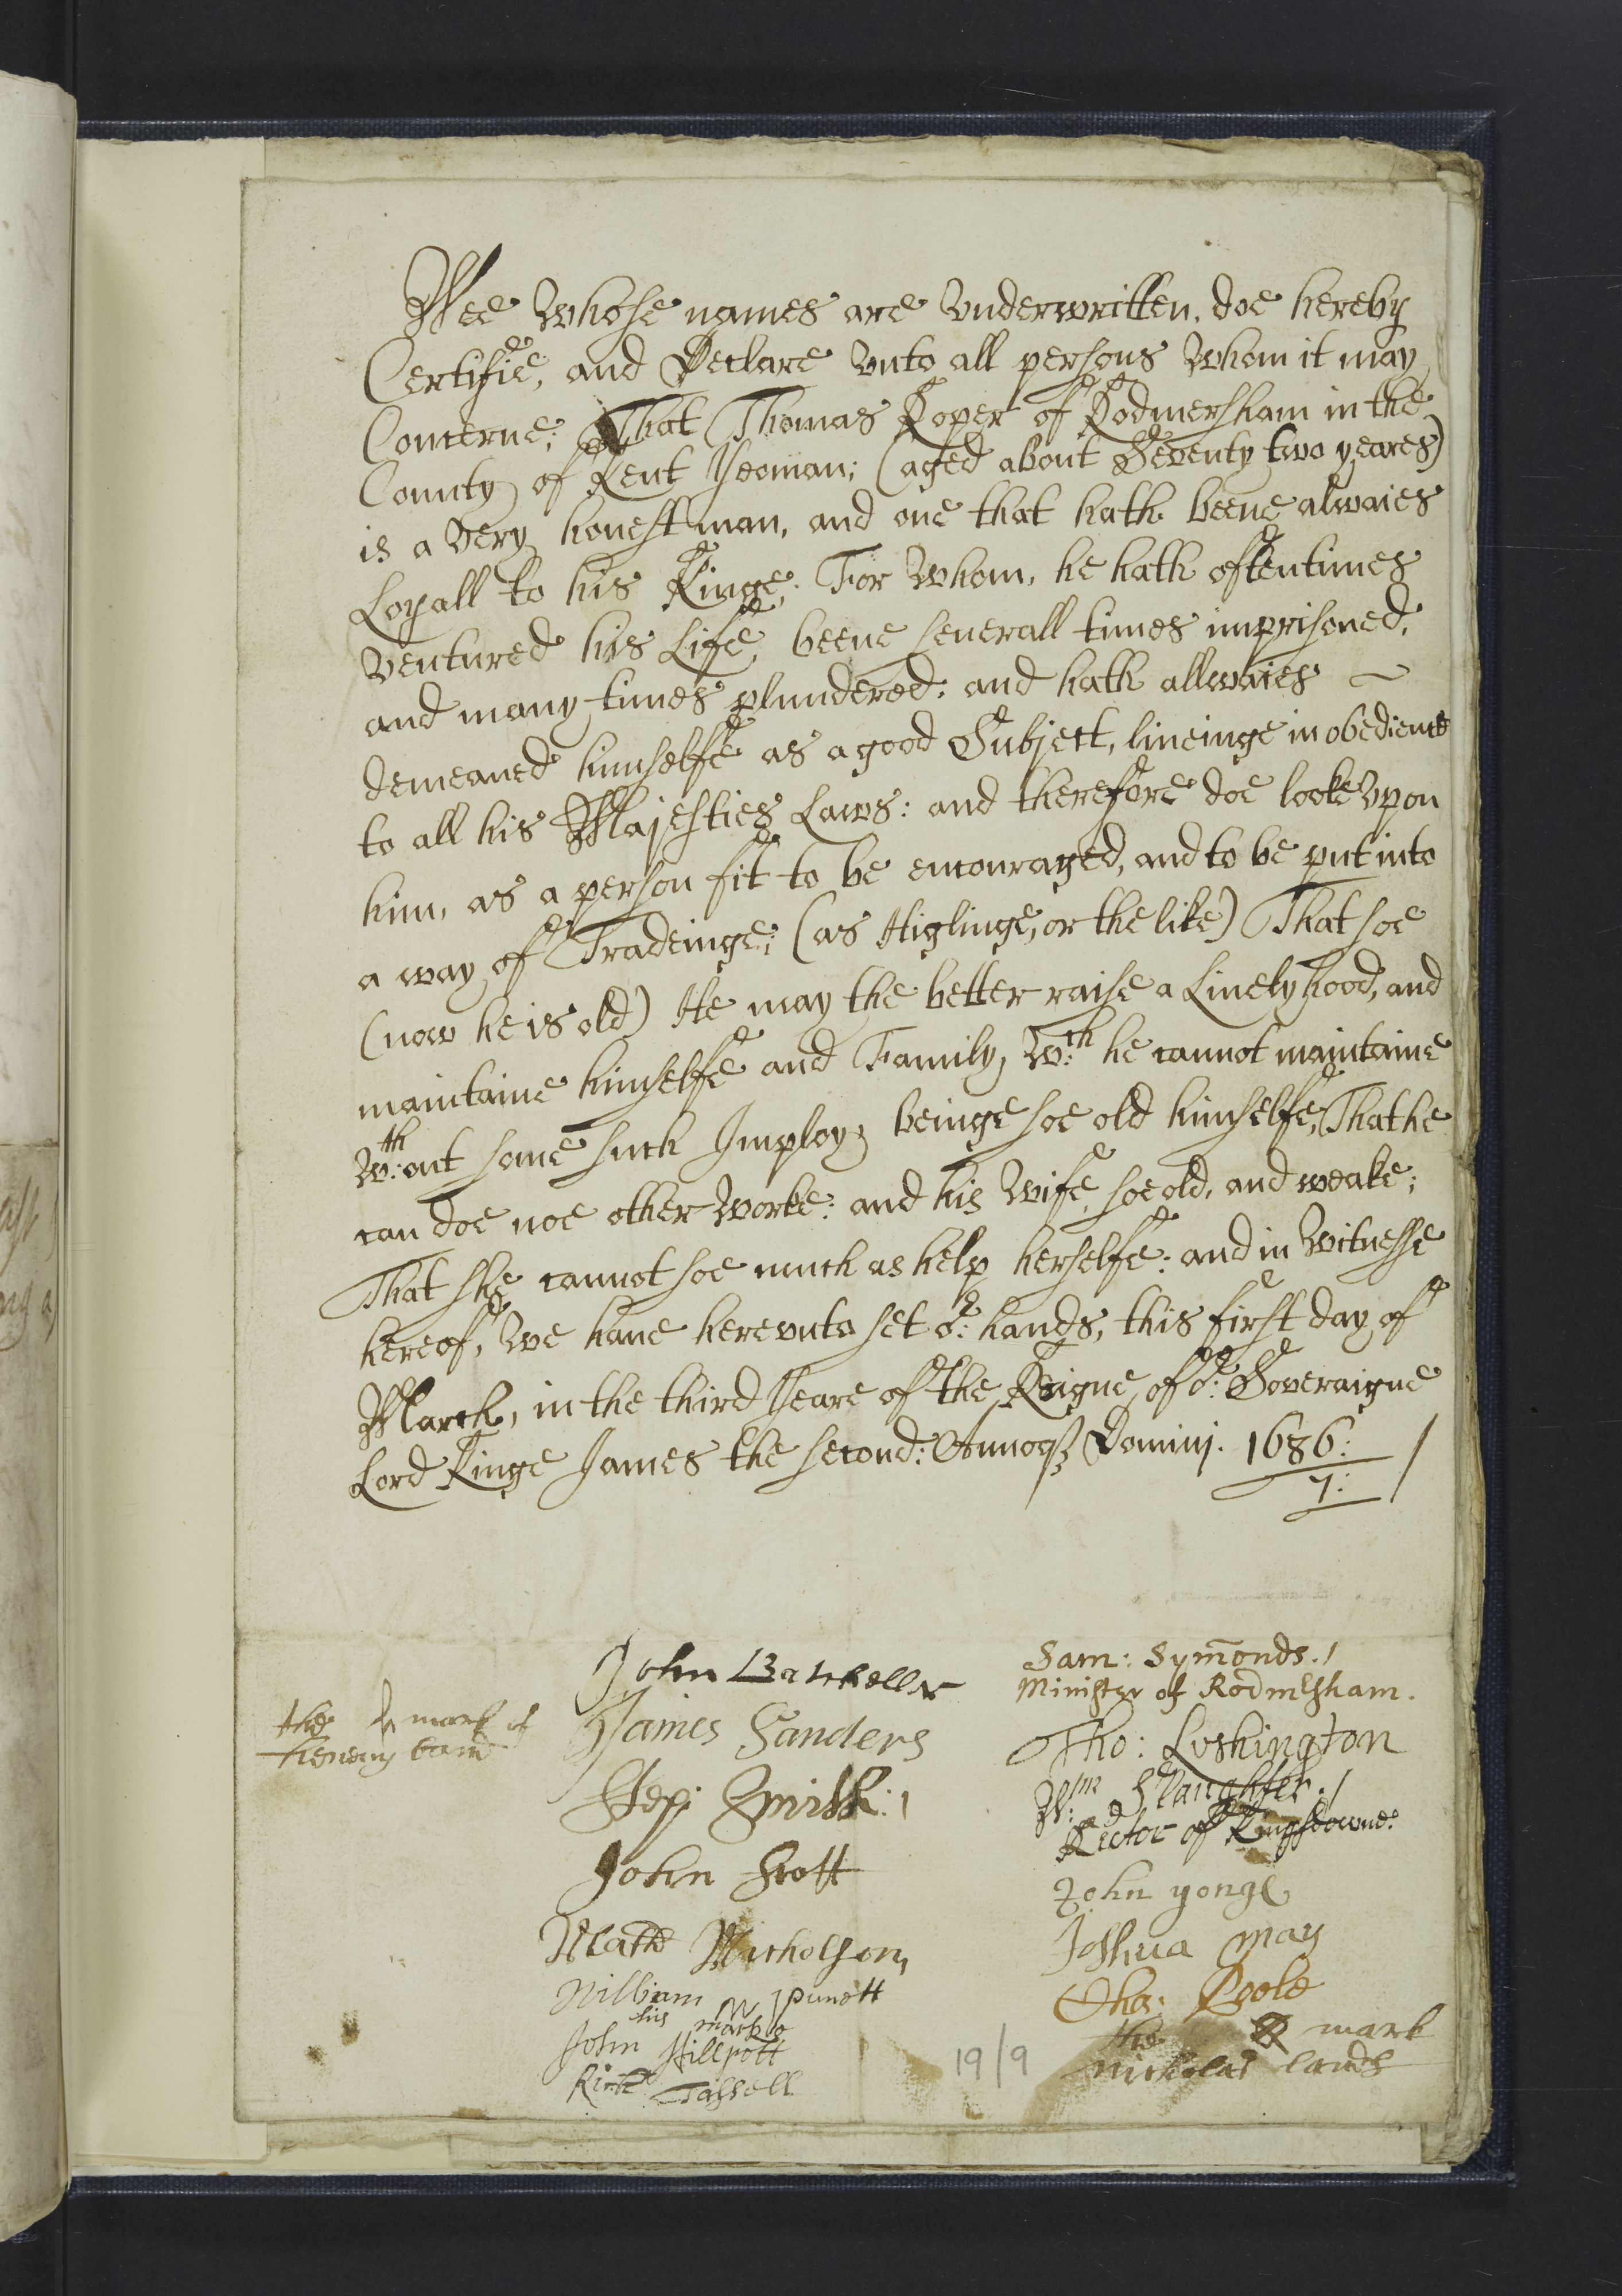 Wee Whose names are Vnderwritten, doe hereby
Certifie, and Declare vnto all persons Whom it may
Concerne; That Thomas Roper of Rodmersham in the
County of Kent Yeoman; (aged about Seventy two yeares)
is a very honest man, and one that hath beene alwaies
Loyall to his Kinge; For Whom, he hath oftentimes
ventured his Life, beene severall times imprisoned,
and many times plundered; and hath allwaies ~
demeaned himselfe as a good Subject, liueinge in obedience
to all his Majesties Laws: and therefore doe looke vpon
him, as a person fit to be encouraged, and to be put into
a way of Tradeinge; (as Higlinge, or the like) That soe
(now he is old) He may the better raise a Liuelyhood, and
maintaine himselfe and Family, W:th he cannot maintaine
W:th out some such Imploy; beinge soe old himselfe, That he
can doe noe other Worke: and his Wife soe old, and weake;
That she cannot soe much as help herselfe: and in Witnesse
hereof, We haue herevnto set o:r hands, this first day of
March, in the third Yeare of the Reigne of o:r Soveraigne
Lord Kinge James the second: Annoq3 Dominj. 1686:/
7:
John Batcheller
Sam: Sym̄onds./
Minister of Rodmersham.
the mark of
James Sanders
Tho: Lushington
Step: Smith:/
W:m Slaughter./
Rector of Kingsdowne:
John Scott
John yonge
Math Nicholson
Joshua may
William Punett
his marke
Tho: Poole
John Hillpott
the mark
Rich:d Tassell
Nicholas lands
19/9